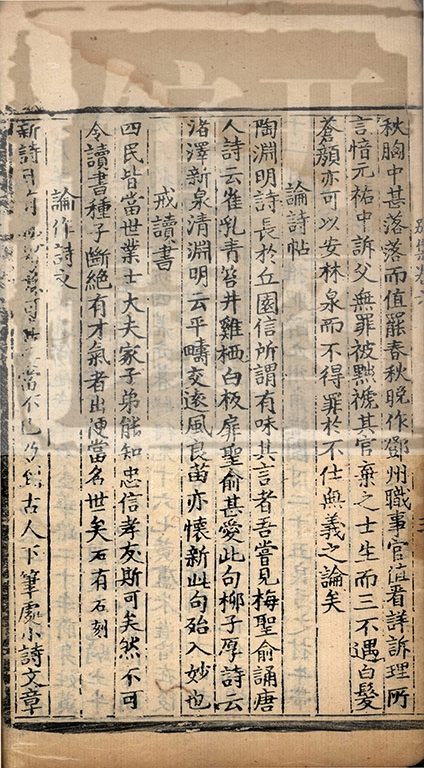 別集卷六
秋胸中甚落落而值罷春秋晚作鄧州職事官值看詳訴理所
言愔元祐中訴父無罪被黜褫其官棄之士生而三不遇白髮
蒼顏亦可以安林泉而不得罪於不仕無義之論矣
論詩帖
陶淵明詩長於丘園信所謂有味其言者吾嘗見梅聖俞誦唐
人詩云雀乳青苔井雞栖白板扉聖俞甚愛此句柳子厚詩云
渚澤新泉清淵明云平疇交遠風良苗亦懷新此句殆入妙也
戒讀書
四民皆當世業士大夫家子弟能知忠信孝友斯可矣然不可
令讀書種子斷絕有才氣者出便當名世矣石有石刻
論作詩文
新詩 當不已乃 古人下筆處小詩文章